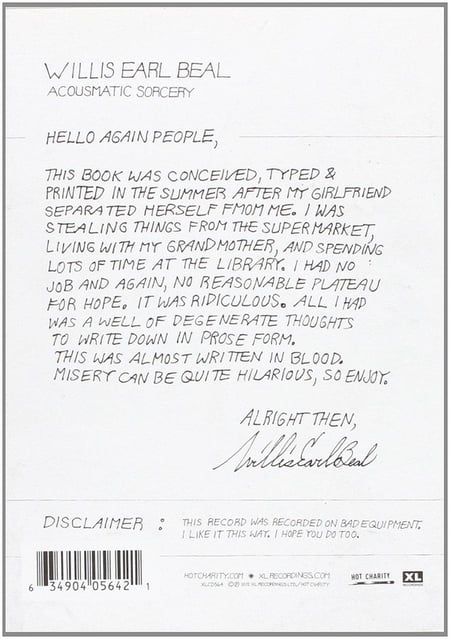 WILLIS EARL BEAL
ACOUSMATIC SORCERY
HELLO AGAIN PEOPLE,
THIS BOOK WAS CONCEIVED, TYPED &
PRINTED IN THE SUMMER AFTER MY GIRLFRIEND
SEPARATED HERSELF FMOM ME. I WAS
STEALING THINGS FROM THE SUPERMARKET,
LIVING WITH MY GRANDMOTHER, AND SPENDING
LOTS OF TIME AT THE LIBRARY. I HAD NO
JOB AND AGAIN, NO REASONABLE PLATEAU
FOR HOPE. IT WAS RIDICULOUS. ALL I HAD
WAS A WELL OF DEGENERATE THOUGHTS
TO WRITE DOWN IN PROSE FORM.
THIS WAS ALMOST WRITTEN IN BLOOD.
MISERY CAN BE QUITE HILARIOUS, SO ENJOY.
ALRIGHT THEN,
Willis Earl Beal
DISCLAIMER : THIS RECORD WAS RECORDED ON BAD EQUIPMENT.
I LIKE IT THIS WAY. I HOPE YOU DO TOO.
6 34904 05642 1
HOTCHARITY.COM * XLRECORDINGS.COM
XL RECORDINGS LTD/HOT CHARITY
HOT CHARITY
XL
RECORDINGS